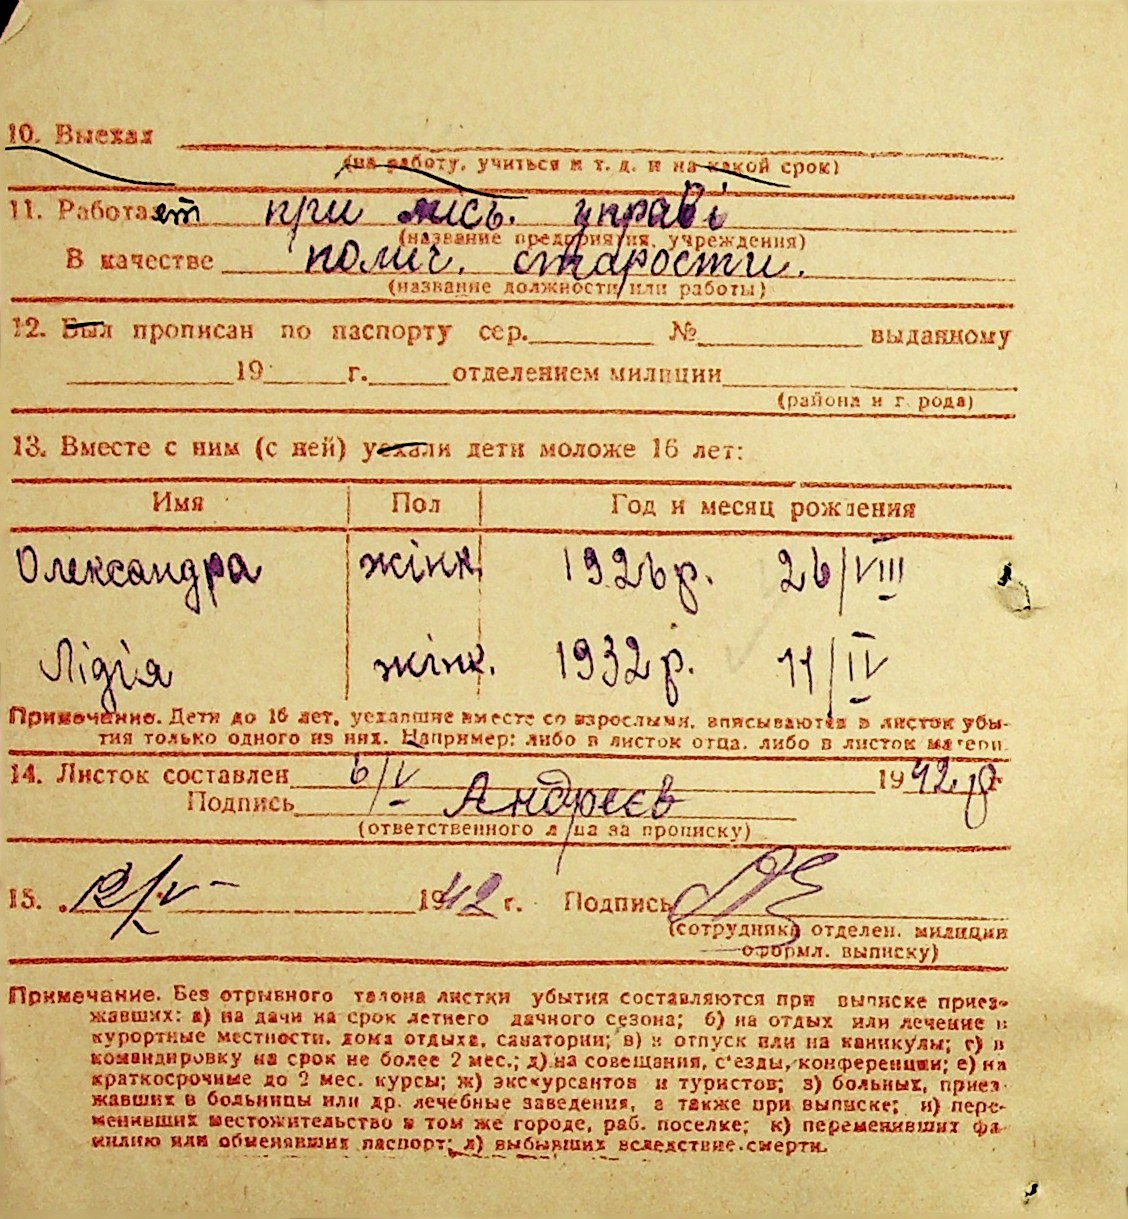 10. Выехал
(на работу, учиться и т. д. и на какой срок)
11. Работает при міськ. управі
(название предприятия, учреждения)
В качестве поміч. старости.
(название должности или работы)
12. Был прописан по паспорту сер. № выданному
19 г. отделением милиции
(района и города)
13. Вместе с ним (с ней) уехали дети моложе 16 лет:
Имя Пол Год и месяц рождения
Олександра жінк. 1926 р. 26/VIII
Лідія жінк. 1932 р. 11/IV
Примечание. Дети до 16 лет, уехавшие вместе со взрослыми, вписываются в листок убы-
тия только одного из них. Например: либо в листок отца, либо в листок матери.
14. Листок составлен 6/V 1942 р
Подпись Андреєв
(ответственного лица за прописку)
15. 12/V- 1942 г. Подпись
(сотрудника отделен. милиции
оформл. выписку)
Примечание. Без отрывного талона листки убытия составляются при выписке приез-
жавших: а) на дачи на срок летнего дачного сезона; б) на отдых или лечение в
курортные местности, дома отдыха, санатории; в) в отпуск или на каникулы; г) в
командировку на срок не более 2 мес.; д) на совещания, с'езды, конференции; е) на
краткосрочные до 2 мес. курсы; ж) экскурсантов и туристов; з) больных, приез-
жавших в больницы или др. лечебные заведения, а также при выписке; и) пере-
менивших местожительство в том же городе, раб. поселке; к) переменивших фа-
милию или обменявших паспорт; л) выбывших вследствие смерти.